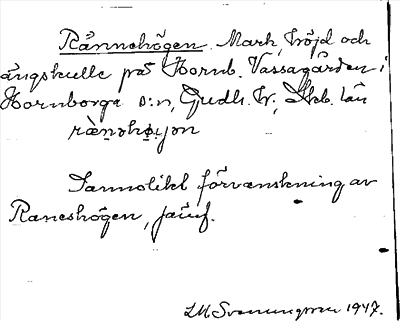 Rännehögen. Mark, höjd och
ängskulle på Hornb. Vassagården i
Hornborga s:n, Gudh. hr., Skb. län
Sannolikt förvanskning av
Raneshögen, jämf.
1947.